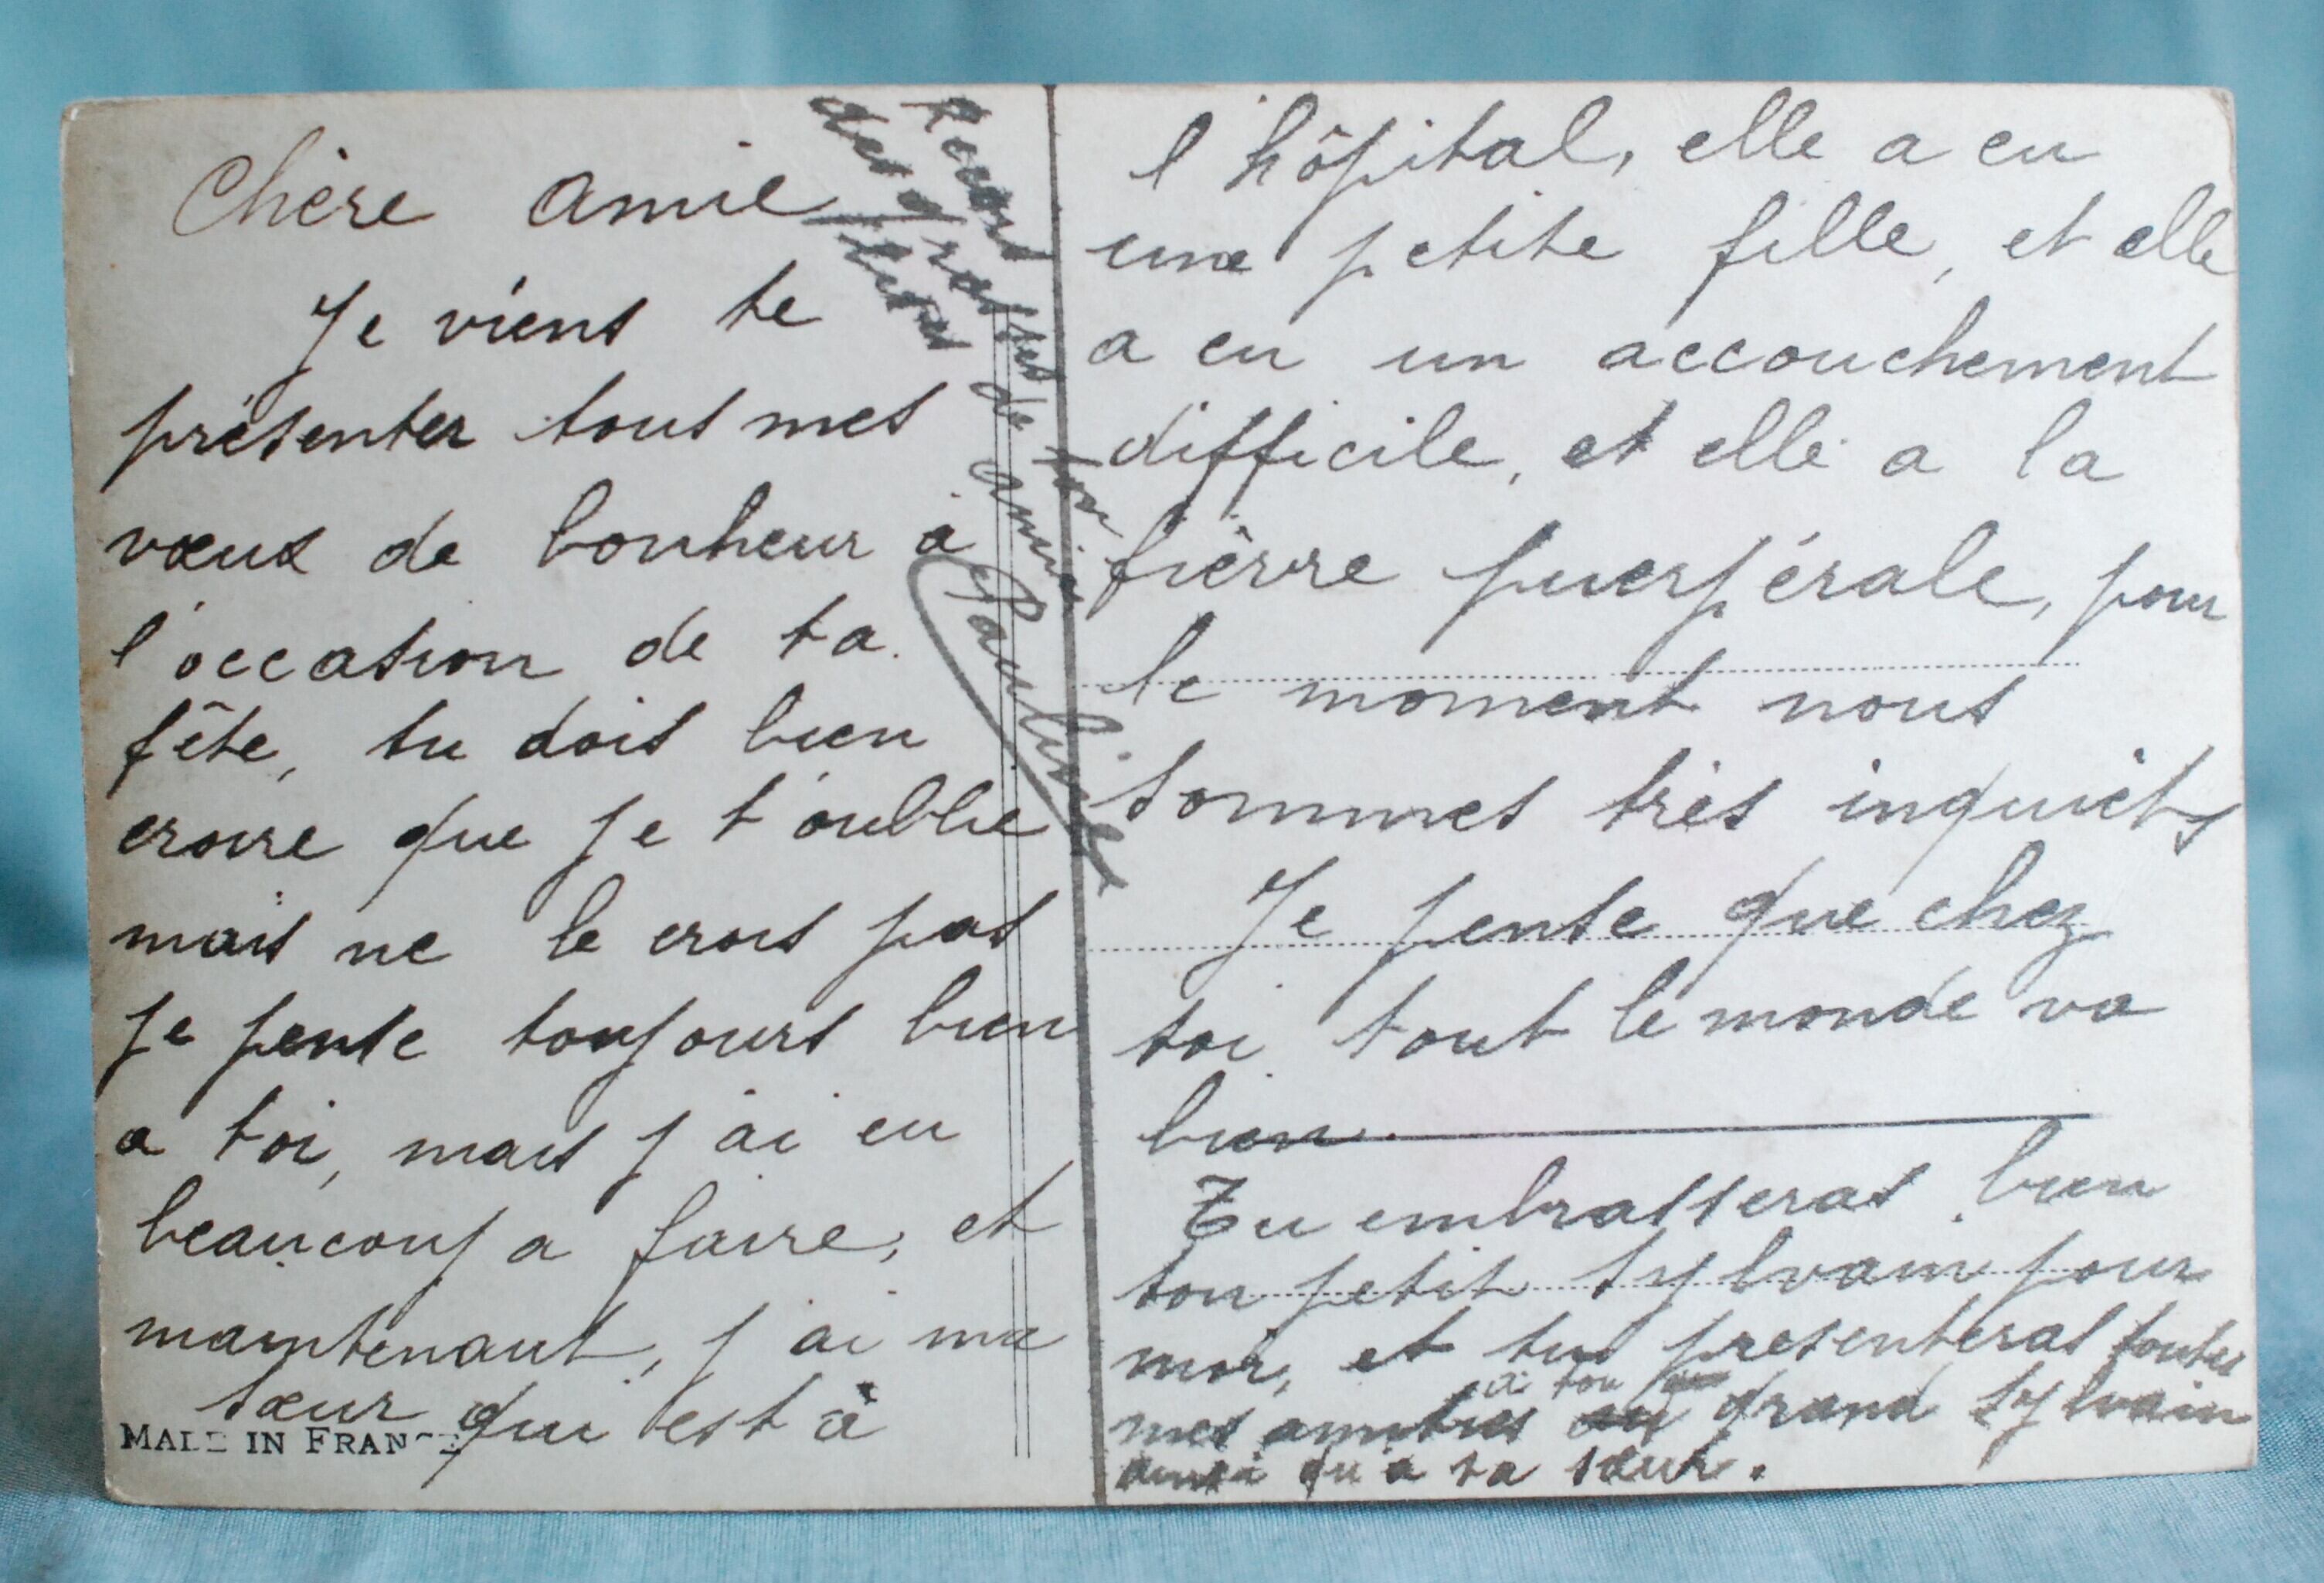 Chère amie
Je viens te
présenter tous mes
vœux de bonheur à
l'occasion de ta
fête, tu dois bien
croire que je t'oublie
mais ne le crois pas
je pense toujours bien
a toi, mais j'ai eu
beaucoup a faire, et
maintenant, j'ai ma
sœur qui est à
MADE IN FRANCE
l'hôpital, elle a eu
une petite fille, et elle
a eu un accouchement
difficile, et elle a la
fièvre puerpérale, pour
le moment nous
sommes très inquiets
Je pense que chez
toi tout le monde va
bien.
Tu embrasseras bien
ton petit Sylvain pour
moi, et tu presenteras toutes
mes amitiés à ton grand Sylvain
ainsi qu'a ta sœur.
Reçois
des grosses de ton
bises amie
Pauline